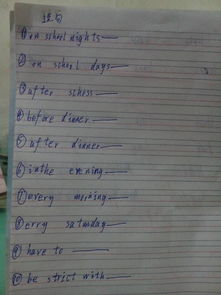 造句
①on school nights——
②on school days——
③after schoss——
④before dinner——
⑤after dinner——
⑥inthe evening——
⑦every morning——
⑧erry satuday——
⑨have to——
⑩be strict with——